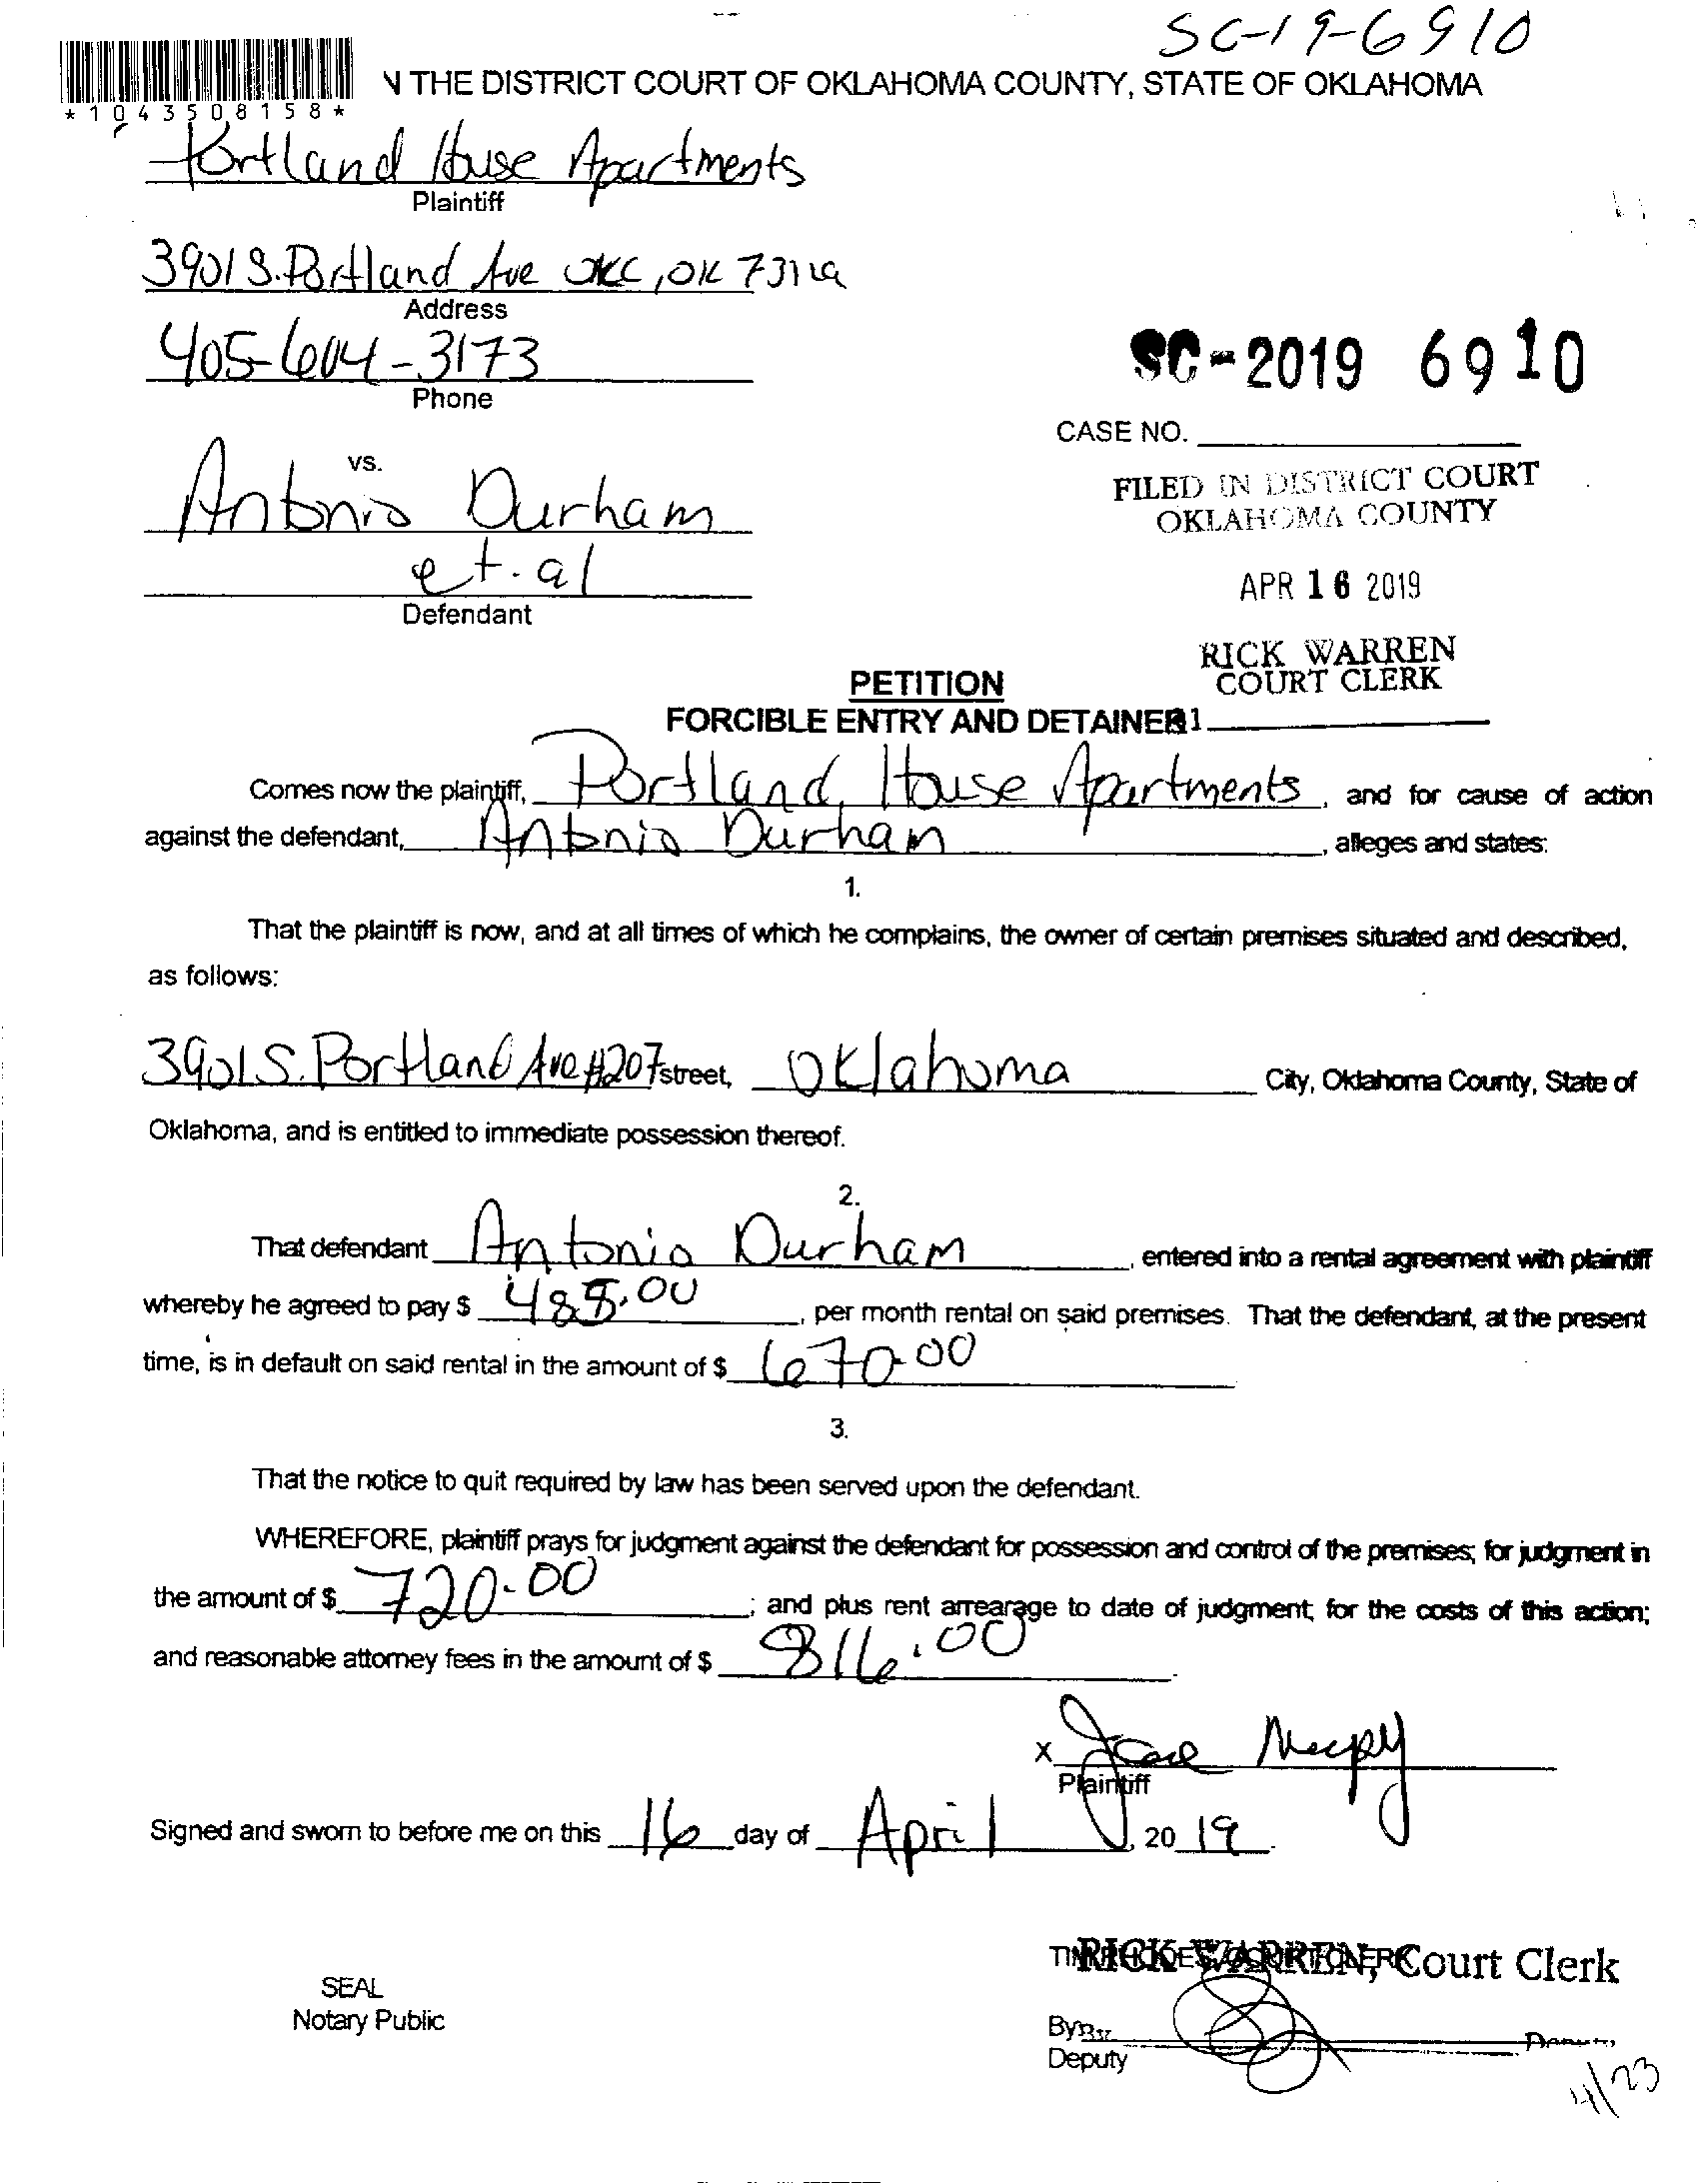 SC-19-6910
N THE DISTRICT COURT OF OKLAHOMA COUNTY, STATE OF OKLAHOMA
* 1 0 4 3 5 0 8 1 5 8 *
Portland House Apartments
Plaintiff
3901 S. Portland Ave OKC, OK 73119
Address
405-604-3173
Phone
SC-2019 6910
CASE NO.
vs.
Antonio Durham
et. al
Defendant
FILED IN DISTRICT COURT
OKLAHOMA COUNTY
APR 16 2019
RICK WARREN
COURT CLERK
PETITION
FORCIBLE ENTRY AND DETAINER
Comes now the plaintiff, Portland House Apartments, and for cause of action
against the defendant, Antonio Durham, alleges and states:
1.
That the plaintiff is now, and at all times of which he complains, the owner of certain premises situated and described,
as follows:
3901 S. Portland Ave #207 street, Oklahoma City, Oklahoma County, State of
Oklahoma, and is entitled to immediate possession thereof.
2.
That defendant Antonio Durham, entered into a rental agreement with plaintiff
whereby he agreed to pay $ , per month rental on said premises. That the defendant, at the present
time, is in default on said rental in the amount of $ 670.00
3.
That the notice to quit required by law has been served upon the defendant.
WHEREFORE, plaintiff prays for judgment against the defendant for possession and control of the premises; for judgment in
the amount of $ 720.00; and plus rent arrearage to date of judgment; for the costs of this action;
and reasonable attorney fees in the amount of $ 816.00
X
Plaintiff
Signed and sworn to before me on this 16 day of April, 20 19.
RICK WARREN, Court Clerk
SEAL
Notary Public
By
Deputy
4/23